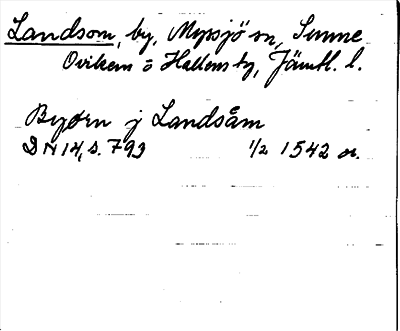 Landsom, by, Myssjö sn, Sunne
Oviken o Hallens tg, Jämtl. l.
Byørn j Landsåm
DN 14, s. 793 1/2 1542 or.